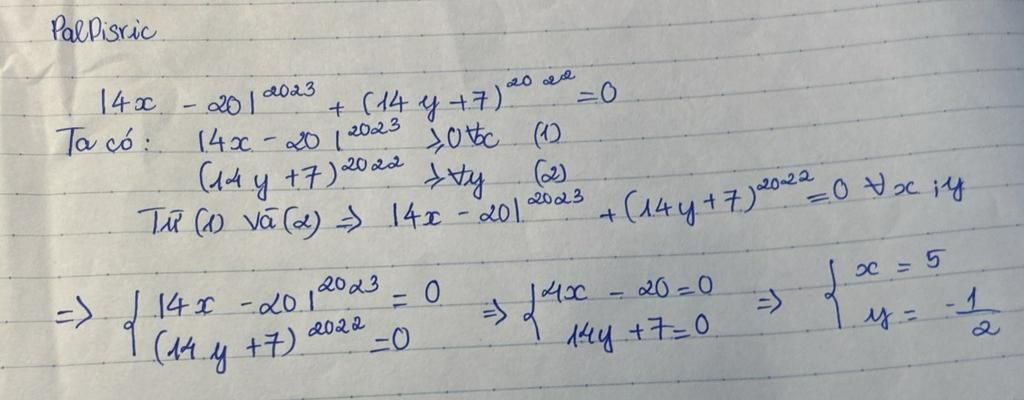 PalPisric
|4x - 20|^2023 + (14y + 7)^2022 = 0
Ta có: |4x - 20|^2023 ⩾0∀x (1)
(14y + 7)^2022 ⩾∀y (2)
Từ (1) và (2) ⇒ |4x - 20|^2023 + (14y + 7)^2022 = 0 ∀x;y
⇒ { |4x - 20|^2023 = 0 ⇒ { 4x - 20 = 0 ⇒ { x = 5
(14y + 7)^2022 = 0 14y + 7 = 0 y = -1/2